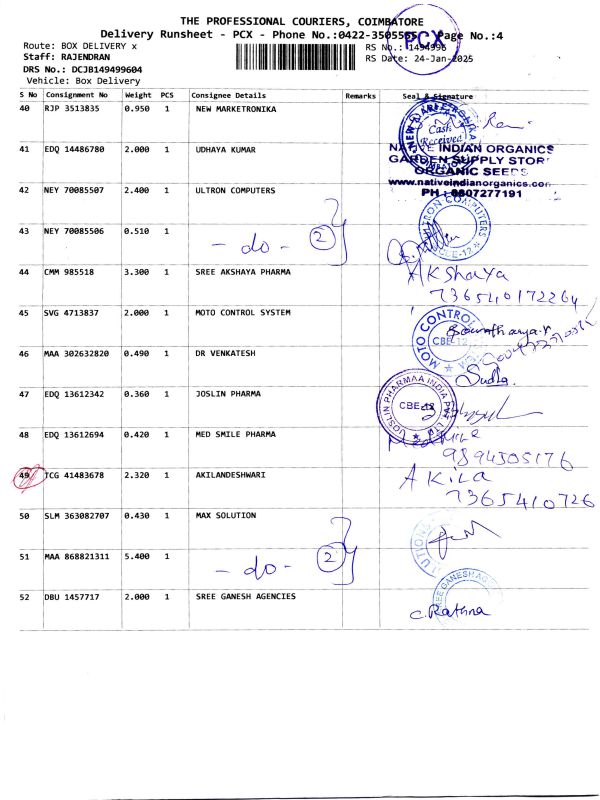 THE PROFESSIONAL COURIERS, COIMBATORE
Delivery Runsheet - PCX - Phone No.:0422-3505565 Page No.:4
PCX
Route: BOX DELIVERY x RS No.: 1494996
Staff: RAJENDRAN RS Date: 24-Jan-2025
DRS No.: DCJB149499604
Vehicle: Box Delivery
S No Consignment No Weight PCS Consignee Details Remarks Seal & Signature
40 RJP 3513835 0.950 1 NEW MARKETRONIKA
Cash Received
41 EDQ 14486780 2.000 1 UDHAYA KUMAR
NATIVE INDIAN ORGANICS
GARDEN SUPPLY STORE
ORGANIC SEEDS
www.nativeindianorganics.com
PH : 6807277191
42 NEY 70085507 2.400 1 ULTRON COMPUTERS
43 NEY 70085506 0.510 1 - do - 2
44 CMM 985518 3.300 1 SREE AKSHAYA PHARMA
AKShaya
736540172264
45 SVG 4713837 2.000 1 MOTO CONTROL SYSTEM
MOTO CONTROL CBE-12
46 MAA 302632820 0.490 1 DR VENKATESH
Sudha
47 EDQ 13612342 0.360 1 JOSLIN PHARMA
JOSLIN PHARMAA INDIA PVT LTD CBE-12
48 EDQ 13612694 0.420 1 MED SMILE PHARMA
9894305176
49 TCG 41483678 2.320 1 AKILANDESHWARI
AKILA
7365410726
50 SLM 363082707 0.430 1 MAX SOLUTION
51 MAA 868821311 5.400 1 - do - 2
52 DBU 1457717 2.000 1 SREE GANESH AGENCIES
C. Rathna